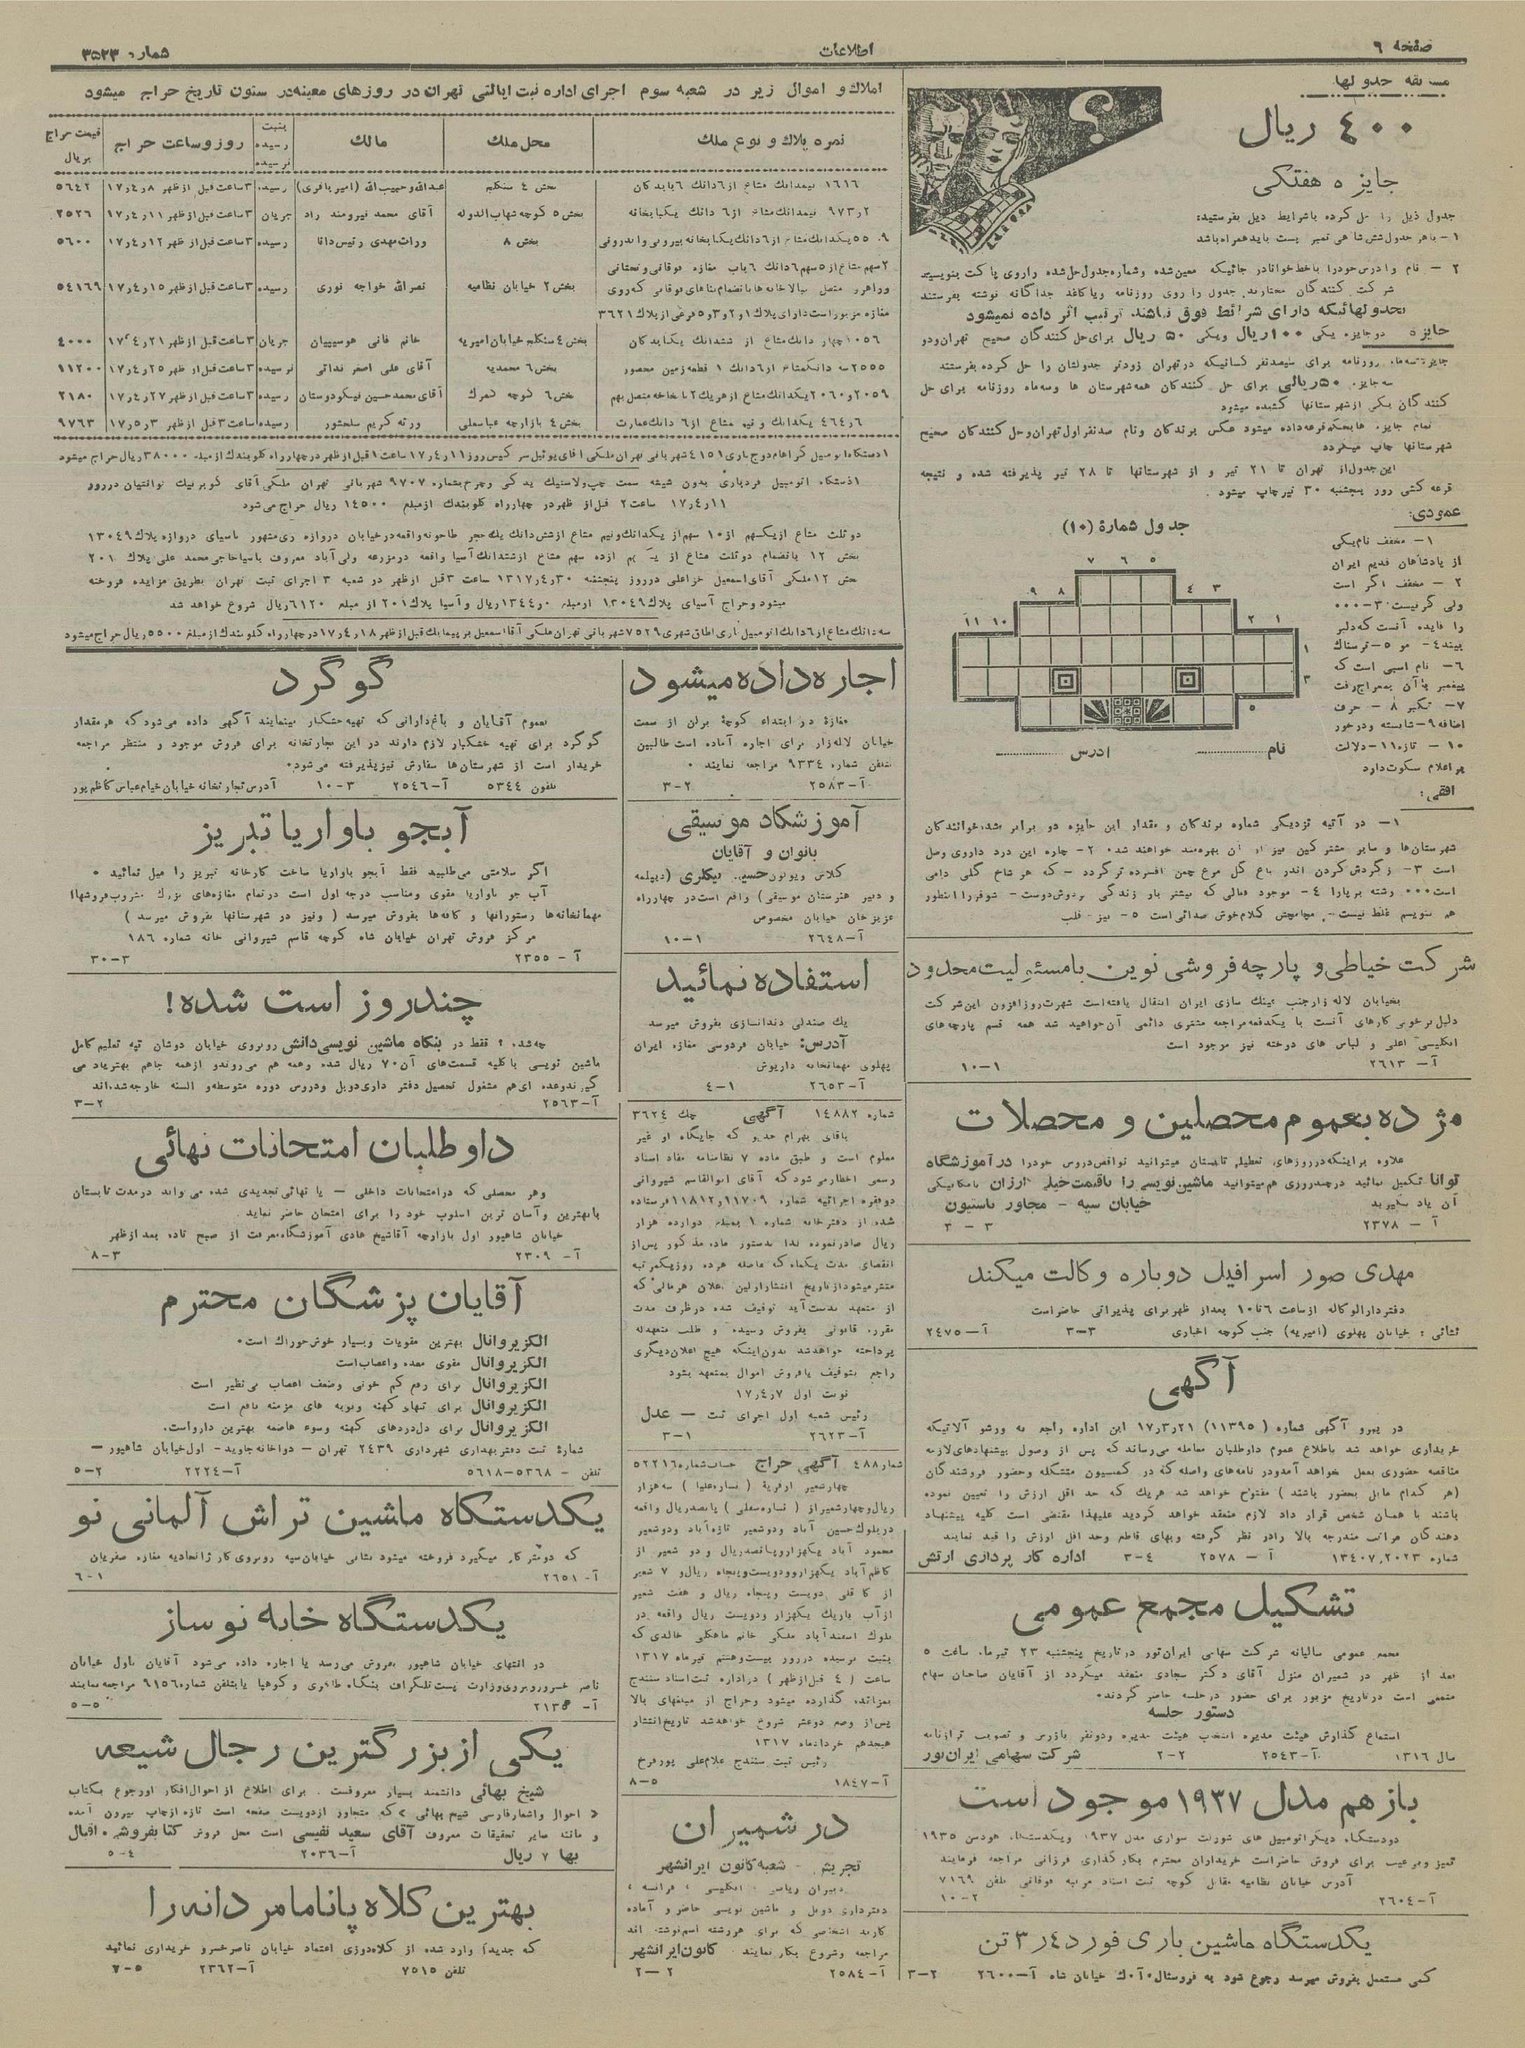 صفحه ۶
اطلاعات
شماره ۳۵۲۳
مسابقه جدولها
۴۰۰ ریال
جایزه هفتگی
جدول ذیل را حل کرده باشرایط ذیل بفرستید:
۱- باهر جدول شش شاهی تمبر پست باید همراه باشد
۲- نام و ادرس خود را باخط خوانا در جائیکه معین شده و شماره جدول حل شده را روی پاکت بنویسید
شرکت کنندگان مختارند جدول را روی روزنامه ویا کاغذ جداگانه نوشته بفرستند
بجدولهائیکه دارای شرائط فوق نباشد ترتیب اثر داده نمیشود
جایزه دو جایزه یکی ۱۰۰ ریال ویکی ۵۰ ریال برای حل کنندگان صحیح تهران و دو
جایزه سه ماهه روزنامه برای سیصد نفر کسانیکه در تهران زودتر جدولشان را حل کرده بفرستند
سه جایزه ۵۰ ریالی برای حل کنندگان همه شهرستان ها وسه ماه روزنامه برای حل
کنندگان یکی از شهرستانها کشیده میشود
تمام جایزه ها بحکم قرعه داده میشود عکس برندگان و نام صد نفر اول تهران و حل کنندگان صحیح
شهرستانها چاپ میگردد
این جدول از تهران تا ۲۱ تیر و از شهرستانها تا ۲۸ تیر پذیرفته شده و نتیجه
قرعه کشی روز پنجشنبه ۳۰ تیر چاپ میشود .
جدول شمارۀ (۱۰)
نام
ادرس
عمودی:
۱- مخفف نام یکی
از پادشاهان قدیم ایران
۲- مخفف اگر است
ولی گر نیست ۳-۰۰۰
را فایده آنست که دلبر
بیند ۴- مو ۵- ترسناک
۶- نام اسبی است که
پیغمبر باآن بمعراج رفت
۷- تکبیر ۸- حرف
اضافه ۹- شایسته و درخور
۱۰- تازه ۱۱- دلالت
بر اعلام سکوت دارد
افقی:
۱- در آتیه نزدیکی شماره برندگان و مقدار این جایزه دو برابر میشد، خوانندگان
شهرستان ها و سایر مشترکین نیز از آن بهره مند خواهند شد. ۲- چاره این درد داروی وصل
است ۳- ز گردش کردن اندر باغ گل مرغ چمن افسرده تر گردد - که هر شاخ گلی دامی
است ۰۰۰ رشته برپارا ۴- موجود فعالی که بیشتر بار زندگی بردوش دوست - شوفر را اینطور
هم بنویسیم غلط نیست
املاک و اموال زیر در شعبه سوم اجرای اداره ثبت ایالتی تهران در روزهای معینه در ستون تاریخ حراج میشود
نمره پلاک و نوع ملک | محل ملک | مالک | بثبت رسیده نرسیده | روز و ساعت حراج | قیمت حراج بریال
۱۶۱۶ نیمدانک مشاع از ۶ دانک ۶ باب دکان | بخش ۴ سنگلج | عبدالله و حبیب الله (امیر باقری) | رسیده | ۳ ساعت قبل از ظهر ۱۷ر۴ر۸ | ۵۶۴۲
۲ر۹۷۳ نیمدانک مشاع از ۶ دانک یکبابخانه | بخش ۵ کوچه شهاب الدوله | آقای محمد نیرومند راد | جریان | ۳ ساعت قبل از ظهر ۱۷ر۴ر۱۱ | ۲۵۲۶
۹ر۵۵ یکدانک مشاع از ۶ دانک یکبابخانه بیرونی و اندرونی | بخش ۸ | وراث مهدی رئیس دانا | رسیده | ۳ ساعت قبل از ظهر ۱۷ر۴ر۱۲ | ۵۶۰۰
۲ سهم مشاع از ۵ سهم ۶ دانک ۶ باب مغازه فوقانی و تحتانی
و راهرو متصل ببالاخانه ها بانضمام بناهای فوقانی که روی
مغازه مزبور است دارای پلاک ۱ و ۲ و ۳ و ۵ فرعی از پلاک ۳۶۲۱ | بخش ۲ خیابان نظامیه | نصرالله خواجه نوری | رسیده | ۳ ساعت قبل از ظهر ۱۷ر۴ر۱۵ | ۵۴۱۶۹
۱۰۵۶ چهار دانک مشاع از ششدانک یکبابدکان | بخش ۴ سنگلج خیابان امیریه | خانم فانی هوسپیان | جریان | ۳ ساعت قبل از ظهر ۱۷ر۴ر۲۱ | ۴۰۰۰
۲۵۵۵ سه دانک مشاع از ۶ دانک ۱ قطعه زمین محصور | بخش ۶ محمدیه | آقای علی اصغر فدائی | نرسیده | ۳ ساعت قبل از ظهر ۱۷ر۴ر۲۵ | ۱۱۲۰۰
۲۰۵۹ و ۲۰۶۰ یکدانک مشاع از هر یک ۲ باب خانه متصل بهم | بخش ۶ کوچه گمرک | آقای محمد حسین نیکودوستان | رسیده | ۳ ساعت قبل از ظهر ۱۷ر۴ر۲۷ | ۲۱۸۰
۶ر۴۶۴ یکدانک و نیم مشاع از ۶ دانک عمارت | بخش ۴ بازارچه عباسعلی | ورثه کریم سلحشور | رسیده | ساعت ۳ قبل از ظهر ۱۷ر۵ر۳ | ۹۷۶۳
۱ دستگاه اتومبیل گراهام دوج باری ۴۱۵۱ شهربانی تهران ملکی آقای یوئیل سرکیس روز ۱۷ر۴ر۱۱ ساعت ۱ قبل از ظهر در چهارراه گلوبندک از مبلغ ۳۸۰۰۰ ریال حراج میشود
۱ دستگاه اتومبیل فرد باری بدون شیشه سمت چپ و لاستیک یدکی و چرخ بشماره ۹۷۰۷ شهربانی تهران ملکی آقای کوبرنیک نوافتیان در روز
۱۷ر۴ر۱۱ ساعت ۲ قبل از ظهر در چهارراه گلوبندک از مبلغ ۱۴۵۰۰ ریال حراج می شود
دو ثلث مشاع از یکسهم از ۱۰ سهم از یکدانک و نیم مشاع از شش دانک یک حجر طاحونه واقعه در خیابان دروازه ری مشهور باسیای دروازه پلاک ۱۳۰۴۹
بخش ۱۲ بانضمام دو ثلث مشاع از یک سهم از ده سهم مشاع از ششدانک آسیا واقعه در مزرعه ولی آباد معروف باسیا حاجی محمد علی پلاک ۲۰۱
بخش ۱۲ ملکی آقای اسمعیل خزاعلی در روز پنجشنبه ۱۳۱۷ر۴ر۳۰ ساعت ۳ قبل از ظهر در شعبه ۳ اجرای ثبت تهران بطریق مزایده فروخته
میشود و حراج آسیای پلاک ۱۳۰۴۹ از مبلغ ۱۳۴۴۰ ریال و آسیا پلاک ۲۰۱ از مبلغ ۶۱۲۰ ریال شروع خواهد شد
سه دانک مشاع از ۶ دانک اتومبیل باری اطاق شهری ۷۵۲۹ شهربانی تهران ملکی آقا اسمعیل بر پیمانک قبل از ظهر ۱۷ر۴ر۱۸ در چهارراه گلوبندک از مبلغ ۵۵۰۰ ریال حراج میشود
شرکت خیاطی و پارچه فروشی نوین بامسئولیت محدود
بخیابان لاله زار جنب عینک سازی ایران انتقال یافته است شهرت روز افزون این شرکت
دلیل بر خوبی کارهای آنست با یکدفعه مراجعه مشتری دائمی آن خواهید شد همه قسم پارچه های
انگلیسی اعلی و لباس های دوخته نیز موجود است
آ- ۲۶۱۳ ۱-۱۰
مژده بعموم محصلین و محصلات
علاوه براینکه در روزهای تعطیل تابستان میتوانید نواقص دروس خود را در آموزشگاه
توانا تکمیل نمائید در چند روزی هم میتوانید ماشین نویسی را باقیمت خیلی ارزان بامکانیکی
آن یاد بگیرید خیابان سپه - مجاور باستیون
آ- ۲۳۷۸ ۳-۳
مهدی صور اسرافیل دوباره وکالت میکند
دفتر دارالوکاله از ساعت ۶ تا ۱۰ بعد از ظهر برای پذیرائی حاضر است
نشانی: خیابان پهلوی (امیریه) جنب کوچه اخباری ۳-۳ آ- ۲۴۷۵
آگهی
در پیرو آگهی شماره (۱۱۳۹۵) ۱۷ر۳ر۲۱ این اداره راجع به ورشو آلاتیکه
خریداری خواهد شد باطلاع عموم داوطلبان معامله می رساند که پس از وصول پیشنهادهای لازمه
مناقصه حضوری بعمل خواهد آمد و در نامه های واصله که در کمسیون متشکله و حضور فروشندگان
(هر کدام مایل بحضور باشند) مفتوح خواهد شد هر یک که حد اقل ارزش را تعیین نموده
باشند با همان شخص قرار داد لازم منعقد خواهد گردید علیهذا مقتضی است کلیه پیشنهاد
دهندگان مراتب مندرجه بالا را در نظر گرفته و بهای قاطع و حد اقل ارزش را قید نمایند
شماره ۱۳۴۰۷ر۲۰۲۳ آ- ۲۵۷۸ ۴-۳ اداره کار پردازی ارتش
تشکیل مجمع عمومی
مجمع عمومی سالیانه شرکت سهامی ایران نور در تاریخ پنجشنبه ۲۳ تیر ماه ساعت ۵
بعد از ظهر در شمیران منزل آقای دکتر سجادی منعقد میگردد از آقایان صاحبان سهام
متمنی است در تاریخ مزبور برای حضور در جلسه حاضر گردند.
دستور جلسه
استماع گذارش هیئت مدیره انتخاب هیئت مدیره و دو نفر بازرس و تصویب ترازنامه
سال ۱۳۱۶ آ-۲۵۴۳ ۲-۲ شرکت سهامی ایران نور
باز هم مدل ۱۹۳۷ موجود است
دو دستگاه دیگر اتومبیل های شورلت سواری مدل ۱۹۳۷ و یکدستگاه هودسن ۱۹۳۵
تمیز و بی عیب برای فروش حاضر است خریداران محترم بکارگذاری فرزانی مراجعه فرمایند
آدرس خیابان نظامیه مقابل کوچه ثبت اسناد مرتبه فوقانی تلفن ۷۱۶۹
آ- ۲۶۰۴ ۲-۱۰
یکدستگاه ماشین باری فورد ۴ر۳ تن
کمی مستعمل بفروش میرسد رجوع شود به فروستال آ.ک خیابان شاه آ-۲۶۰۰ ۲-۳
اجاره داده میشود
مغازۀ دو ابتداء کوچۀ برلن از سمت
خیابان لاله زار برای اجاره آماده است طالبین
بتلفن شماره ۹۳۳۴ مراجعه نمایند .
آ- ۲۵۸۳ ۲-۳
آموزشگاه موسیقی
بانوان و آقایان
کلاس ویولون حسین بیکلری (دیپلمه
و دبیر هنرستان موسیقی) واقع است در چهارراه
عزیز خان خیابان مخصوص
آ- ۲۶۴۸ ۱-۱۰
استفاده نمائید
یک صندلی دندانسازی بفروش میرسد
آدرس: خیابان فردوسی مغازه ایران
پهلوی مهمانخانه داریوش
آ- ۲۶۵۳ ۱-۴
شماره ۱۴۸۸۲ آگهی چک ۳۶۲۴
بآقای بهرام که جایگاه او غیر
معلوم است و طبق ماده ۷ نظامنامه مفاد اسناد
رسمی اخطار می شود که آقای ابوالقاسم شیروانی
دو فقره اجرائیه شماره ۱۱۷۰۹ و ۱۱۸۱۲ فرستاده
شده از دفترخانه شماره ۱ بمبلغ دوازده هزار
ریال صادر نموده لذا بدستور ماده مذکور پس از
انقضای مدت یکماه که بفاصله هر ده روز یکمرتبه
منتشر میشود از تاریخ انتشار اولین اعلان هر مالی که
از متعهد بدست آید توقیف شده در ظرف مدت
مقرره قانونی بفروش رسیده و طلب متعهدله
پرداخته خواهد شد بدون اینکه هیچ اعلان دیگری
راجع بتوقیف یا فروش اموال بمتعهد بشود
نوبت اول ۱۷ر۴ر۷
رئیس شعبه اول اجرای ثبت - عدل
آ- ۲۶۲۳ ۱-۳
شماره ۴۸۸ آگهی حراج حساب شماره ۵۲۲۱۶
چهار شعیر از قریه (نساره علیا) سه هزار
ریال و چهار شعیر از (نساره سفلی) پانصد ریال واقعه
در بلوک حسین آباد و دو شعیر تازه آباد و دو شعیر
محمود آباد یکهزار و پانصد ریال و دو شعیر از
کاظم آباد یکهزار و دویست و پنجاه ریال و ۷ شعیر
از کافی دویست و پنجاه ریال و هفت شعیر
از آب باریک یکهزار و دویست ریال واقعه در
بلوک اسفند آباد ملکی خانم خالدی که
بثبت نرسیده در روز بیست و هشتم تیر ماه ۱۳۱۷
ساعت (۴ قبل از ظهر) در اداره ثبت اسناد سنندج
بمزایده گذارده میشود و حراج از مبلغهای بالا
پس از وضع دو عشر شروع خواهد شد تاریخ انتشار
هیجدهم خرداد ماه ۱۳۱۷
رئیس ثبت سنندج غلامعلی پور فرخ
آ- ۱۸۴۷ ۵-۸
در شمیران
تجریش - شعبه کانون ایرانشهر
دبیران ریاضی، انگلیسی، فرانسه،
دفترداری دوبل و ماشین نویسی حاضر و آماده
کارند اشخاصی که برای هر رشته اسم نوشته اند
مراجعه و شروع بکار نمایند کانون ایرانشهر
آ-۲۵۸۴ ۲-۲
گوگرد
بعموم آقایان و باغدارانی که تهیه خشکبار مینمایند آگهی داده می شود که هر مقدار
گوگرد برای تهیه خشکبار لازم دارند در این تجارتخانه برای فروش موجود و منتظر مراجعه
خریدار است از شهرستان ها سفارش نیز پذیرفته می شود.
تلفون ۵۳۴۴ آ-۲۵۴۶ ۳-۱۰ آدرس تجارتخانه خیابان خیام عباس کاظم پور
آبجو باواریا تبریز
اگر سلامتی می طلبید فقط آبجو باواریا ساخت کارخانه تبریز را میل نمائید .
آب جو باواریا مقوی و مناسب درجه اول است در تمام مغازه های بزرگ مشروب فروشها
مهمانخانه ها رستورانها و کافه ها بفروش میرسد (و نیز در شهرستانها بفروش میرسد)
مرکز فروش تهران خیابان شاه کوچه قاسم شیروانی خانه شماره ۱۸۶
آ- ۲۳۵۵ ۳-۳۰
چند روز است شده!
چه شد؟ فقط در بنگاه ماشین نویسی دانش روبروی خیابان دوشان تپه تعلیم کامل
ماشین نویسی با کلیه قسمت های آن ۷۰ ریال شده و همه هم می روند و از همه جا هم بهتر یاد می
گیرند و عده ای هم مشغول تحصیل دفتر داری دوبل و دروس دوره متوسطه و السنه خارجه شده اند
آ-۲۵۶۳ ۲-۳
داوطلبان امتحانات نهائی
و هر محصلی که در امتحانات داخلی - یا نهائی تجدیدی شده می تواند در مدت تابستان
با بهترین و آسان ترین اسلوب خود را برای امتحان حاضر نماید
خیابان شاهپور اول بازارچه آقا شیخ هادی آموزشگاه معرفت از صبح تا ده بعد از ظهر
آ- ۲۳۰۹ ۳-۸
آقایان پزشگان محترم
الگزیروانال بهترین مقویات و بسیار خوش خوراک است.
الگزیروانال مقوی معده و اعصاب است
الگزیروانال برای رفع کم خونی و ضعف اعصاب بی نظیر است
الگزیروانال برای تبهای کهنه و نوبه های مزمنه نافع است
الگزیروانال برای دل دردهای کهنه و سوء هاضمه بهترین دارو است.
شمارۀ ثبت دفتر بهداری شهرداری ۲۴۳۹ تهران - دواخانه جاوید - اول خیابان شاهپور -
تلفن - ۵۳۶۸-۵۶۱۸ آ-۲۲۲۴ ۲-۵
یکدستگاه ماشین تراش آلمانی نو
که دو متر کار میگیرد فروخته میشود نشانی خیابان سپه روبروی کار ژ اتحادیه مغازه صفریان
آ- ۲۶۵۱ ۱-۶
یکدستگاه خانه نوساز
در انتهای خیابان شاهپور بفروش می رسد یا اجاره داده می شود آقایان باول خیابان
ناصر خسرو روبروی وزارت پست تلگراف بنگاه طاهری و کوهپا یا بتلفن شماره ۹۱۵۶ مراجعه نمایند
آ- ۲۱۳۵ ۵-۵
یکی از بزرگترین رجال شیعه
شیخ بهائی دانشمند بسیار معروفست . برای اطلاع از احوال افکار او رجوع بکتاب
« احوال و اشعار فارسی شیخ بهائی » که متجاوز از دویست صفحه است تازه از چاپ بیرون آمده
و مانند سایر تحقیقات معروف آقای سعید نفیسی است محل فروش کتابفروشی اقبال
بها ۷ ریال آ-۲۰۳۶ ۴-۵
بهترین کلاه پاناما مردانه را
که جدیداً وارد شده از کلاه دوزی اعتماد خیابان ناصر خسرو خریداری نمائید
تلفن ۷۵۱۵ آ-۲۳۶۲ ۵-۷